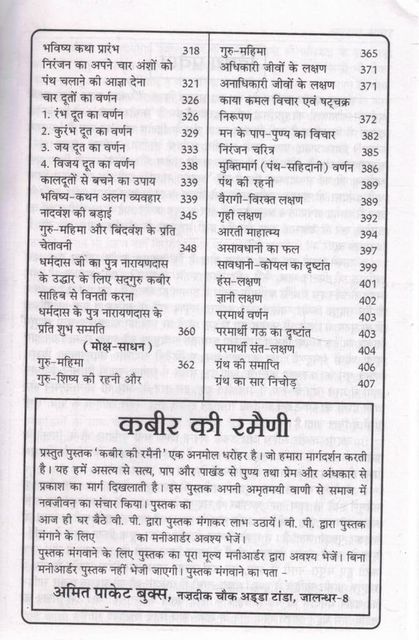 भविष्य कथा प्रारंभ 318
निरंजन का अपने चार अंशों को
पंथ चलाने की आज्ञा देना 321
चार दूतों का वर्णन 326
1. रंभ दूत का वर्णन 326
2. कुरंभ दूत का वर्णन 329
3. जय दूत का वर्णन 333
4. विजय दूत का वर्णन 338
कालदूतों से बचने का उपाय 339
भविष्य-कथन अलग व्यवहार 339
नादवंश की बड़ाई 345
गुरु-महिमा और बिंदवंश के प्रति
चेतावनी 348
धर्मदास जी का पुत्र नारायणदास
के उद्धार के लिए सद्गुरु कबीर
साहिब से विनती करना
धर्मदास के पुत्र नारायणदास के
प्रति शुभ सम्मति 360
(मोक्ष-साधन)
गुरु-महिमा 362
गुरु-शिष्य की रहनी और
गुरु-महिमा 365
अधिकारी जीवों के लक्षण 371
अनाधिकारी जीवों के लक्षण 371
काया कमल विचार एवं षट्चक्र
निरूपण 372
मन के पाप-पुण्य का विचार 382
निरंजन चरित्र 385
मुक्तिमार्ग (पंथ-सहिदानी) वर्णन 386
पंथ की रहनी 389
वैरागी-विरक्त लक्षण 389
गृही लक्षण 392
आरती माहात्म्य 394
असावधानी का फल 397
सावधानी-कोयल का दृष्टांत 399
हंस-लक्षण 401
ज्ञानी लक्षण 402
परमार्थ वर्णन 403
परमार्थी गऊ का दृष्टांत 403
परमार्थी संत-लक्षण 404
ग्रंथ की समाप्ति 406
ग्रंथ का सार निचोड़ 407
कबीर की रमैणी
प्रस्तुत पुस्तक 'कबीर की रमैनी' एक अनमोल धरोहर है। जो हमारा मार्गदर्शन करती
है। यह हमें असत्य से सत्य, पाप और पाखंड से पुण्य तथा प्रेम और अंधकार से
प्रकाश का मार्ग दिखलाती है। इस पुस्तक अपनी अमृतमयी वाणी से समाज में
नवजीवन का संचार किया। पुस्तक का
आज ही घर बैठे वी. पी. द्वारा पुस्तक मंगाकर लाभ उठायें। वी. पी. द्वारा पुस्तक
मंगाने के लिए का मनीआर्डर अवश्य भेजें।
पुस्तक मंगवाने के लिए पुस्तक का पूरा मूल्य मनीआर्डर द्वारा अवश्य भेजें। बिना
मनीआर्डर पुस्तक नहीं भेजी जाएगी। पुस्तक मंगवाने का पता -
अमित पाकेट बुक्स, नज़दीक चौक अड्डा टांडा, जालन्धर-8